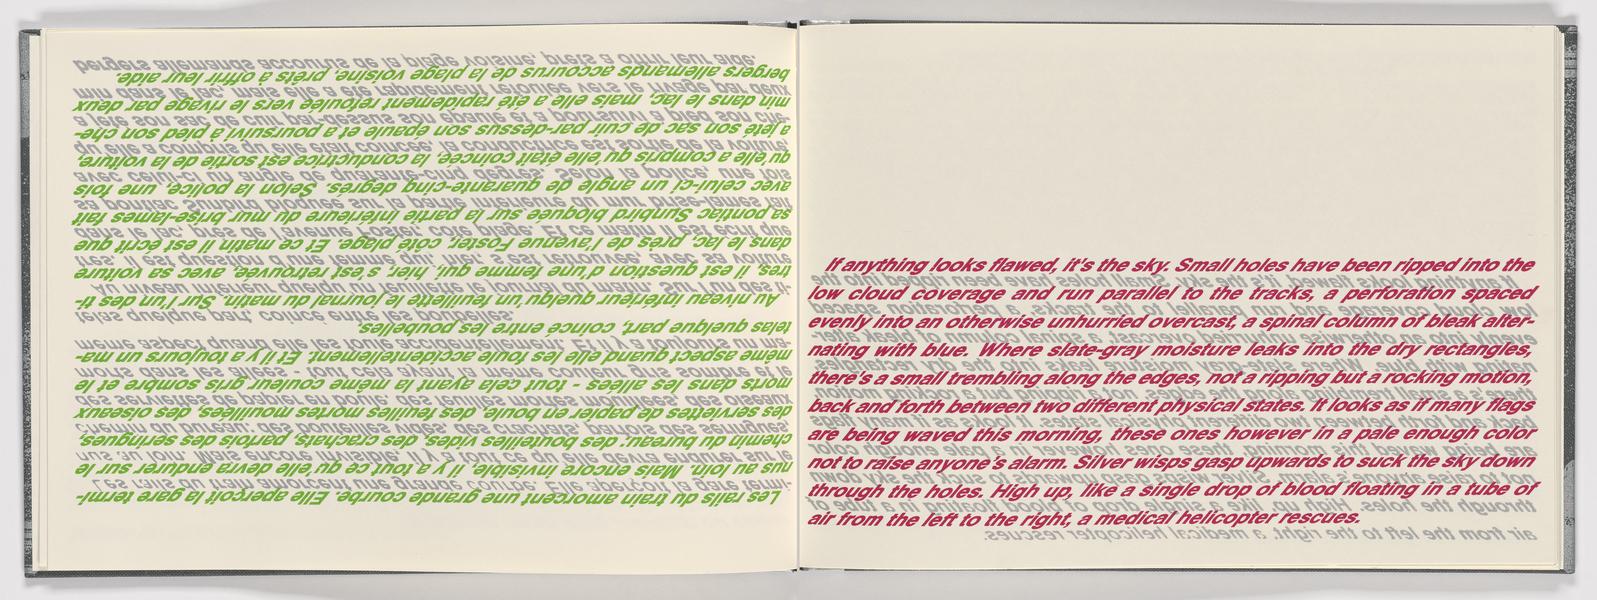 Les rails du train amorcent une grande courbe. Elle aperçoit la gare termi-
nus au loin. Mais encore invisible, il y a tout ce qu'elle devra endurer sur le
chemin du bureau: des bouteilles vides, des crachats, parfois des seringues,
des serviettes de papier en boule, des feuilles mortes mouillées, des oiseaux
morts dans les allées - tout cela ayant la même couleur gris sombre et le
même aspect quand elle les foule accidentellement. Et il y a toujours un ma-
telas quelque part, coincé entre les poubelles.
Au niveau inférieur quelqu'un feuillette le journal du matin. Sur l'un des ti-
tres, il est question d'une femme qui, hier, s'est retrouvée, avec sa voiture
dans le lac, près de l'avenue Foster, côté plage. Et ce matin il est écrit que
sa pontiac Sunbird bloquée sur la partie intérieure du mur brise-lames fait
avec celui-ci un angle de quarante-cinq degrés. Selon la police, une fois
qu'elle a compris qu'elle était coincée, la conductrice est sortie de la voiture,
a jeté son sac de cuir par-dessus son épaule et a poursuivi à pied son che-
min dans le lac, mais elle a été rapidement refoulée vers le rivage par deux
bergers allemands accourus de la plage voisine, prêts à offrir leur aide.
If anything looks flawed, it's the sky. Small holes have been ripped into the
low cloud coverage and run parallel to the tracks, a perforation spaced
evenly into an otherwise unhurried overcast, a spinal column of bleak alter-
nating with blue. Where slate-gray moisture leaks into the dry rectangles,
there's a small trembling along the edges, not a ripping but a rocking motion,
back and forth between two different physical states. It looks as if many flags
are being waved this morning, these ones however in a pale enough color
not to raise anyone's alarm. Silver wisps gasp upwards to suck the sky down
through the holes. High up, like a single drop of blood floating in a tube of
air from the left to the right, a medical helicopter rescues.